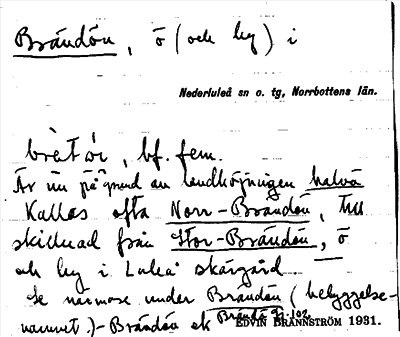 Brändön, ö (och by) i
Nederluleå sn o. tg, Norrbottens län.
bf. fem.
Är nu på grund av landhöjningen halvö
Kallas ofta Norr-Brändön, till
skillnad från Stor-Brändön, ö
och by i Luleå skärgård
Se närmare under Brändön (bebyggelse-
namnet)- Brändön ek
EDVIN BRÄNNSTRÖM 1931.